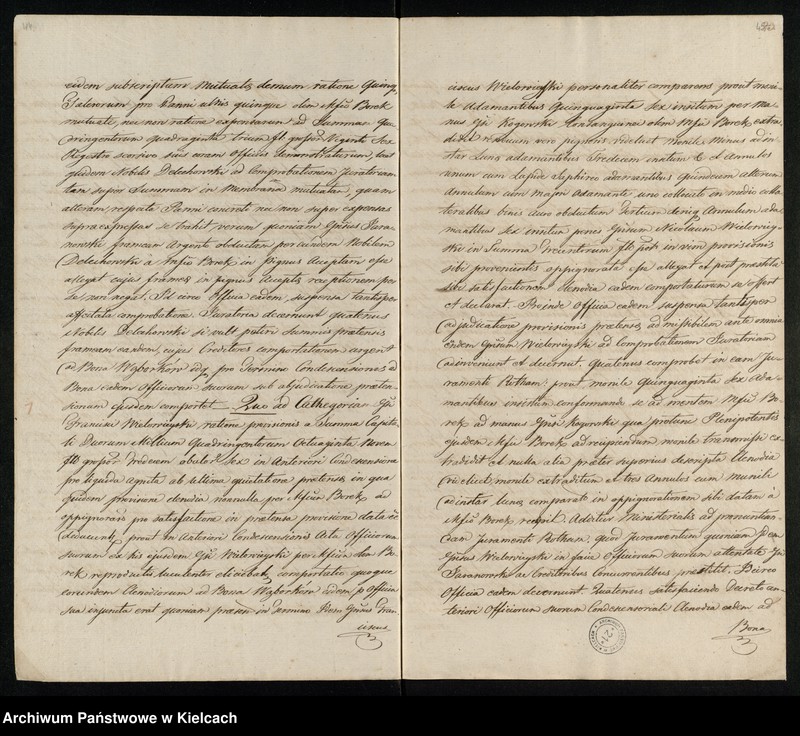 eidem subscriptium Mutualis demum ratione Quinq
Talerorum pro Panni ulnis quinque olim Mfco Borek
mutuate, nec non ratione expensarum ad Summam Qua
dringentorum quadraginta trium fl. grossor Viginti Sex
Regestro coram Officio demonstratarum, licet
quidem Nobilis Delechowski ad comprobationem Juratoriam
tam super Summam in Membrana mutuatam, quam
alteram, respectu Panni concreti nec non super expensas
supra expressas se trahit verum quoniam Gnsus Tara
nowski frameam Argento obductam per eundem Nobilem
Delechowski a Mfco Borek in pignus Acceptam esse
allegat cujus frameae in pignus Acceptae receptionem per
se, non negat. Id circo Officia eadem, suspensa tantisper
affectata comprobatione Juratoria decernunt quatenus
Nobilis Delechowski si vult potiri Summis praetensis
frameam eandem, cujus Creditores comportationem urgent
ad Bona Węborków idq pro Termino Condescensionis ad
Bona eadem Officiorum suorum sub abjudicatione praeten
sionum ejusdem comportet. Quo ad Cathegoriam Gsi
Francisci Wielowieyski ratione provisionis a Summa Capita
li Duorum Millium Quadringentorum Octuaginta Novem
flo grossor Tredecim obulor Sex in Anteriori Condescensione
pro liquida agnita ab ultima quietatione praetensae, in qua
quidem provisione clenodia nonnulla per Mfcum Borek ad
oppignorata pro satisfactione in praetensa provisione data ēē
dicuntur, prout in Anteriori Condescensionis Acto Officiorum
suorum ex his ejusdem Gsi Wielowieyski per Mfcum olim Bo
rek reproductis luculenter eliciebat, comportatio quoque
eorundem Clenodiorum ad Bona Węborków eidem p Officia
sua injuncta erat quoniam praesen in Termino Idem Gnsus Fran
ciscus
ciscus Wielowieyski personaliter comparens prout moni
le Adamantibus Quinquaginta Sex insitum per Ma
nus Gsi Rogowski Consanguinei olim Mfci Borek extra
didit in suum vero pignoris reducit Monile Minus ad in
star Lunae adamantibus Tredecim insitum & et Annulos
unum cum Lapide Zephireo adamantibus Quindecim alterum
Annulum cum majori Adamante, uno collocato in medio colla
teralibus binis auro obductum Tertium deniq Annulum ada
mantibus Sex insitum penes Gsnum Nicolaum Wielowiey
ski in Summa Trecentorum flo pol: in vim provisionis
sibi provenientis oppignorata esse allegat et post praestita
sibi satisfactionem clenodia eadem comportaturum se offert
et declarat. Proinde Officia eadem suspensa tantisper
adjudicatione provisionis praetensae, ad missibilem ante omnia
eidem Gsnum Wielowieyski ad comprobationem Juratoriam
adinveniunt et decernunt. Quatenus comprobet in eam Ju
ramenti Rotham: prout monile Quinquaginta Sex Ada
mantibus insitum conformando se ad mentem Mfci Bo
rek ad manus Gsi Rogowski qua protunc Plenipotentis
ejusdem Mfci Borek ad recipiendum monile transmissi ex
tradidit et nulla alia praeter superius descripta Clenodia
videlicet monile extraditum et tres Annulos cum monili
ad instar Lunae comparato in oppignorationem sibi datam à
Mfco Borek recepit. Additur Ministerialis ad pronuntian
dam Juramenti Rotham. Quod juramentum quoniam Idem
Gsnus Wielowieyski in facie Officiorum suorum attentate Gsi
Taranowski ac Creditoribus Concurrentibus praestitit. Idcirco
Officia eadem decernunt Quatenus satisfaciendo Decreto an
teriori Officiorum suorum Condescensoriali Clenodia eadem ad
Bona
Archiwum Państwowe w Kielcach